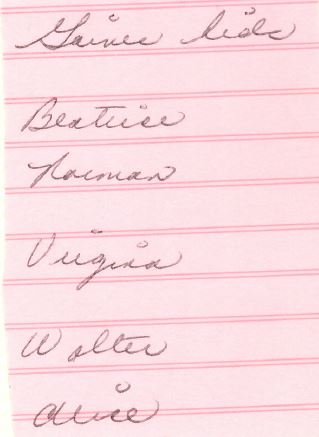 Gaines kids
Beatrice
Norman
Virginia
Walter
Alice